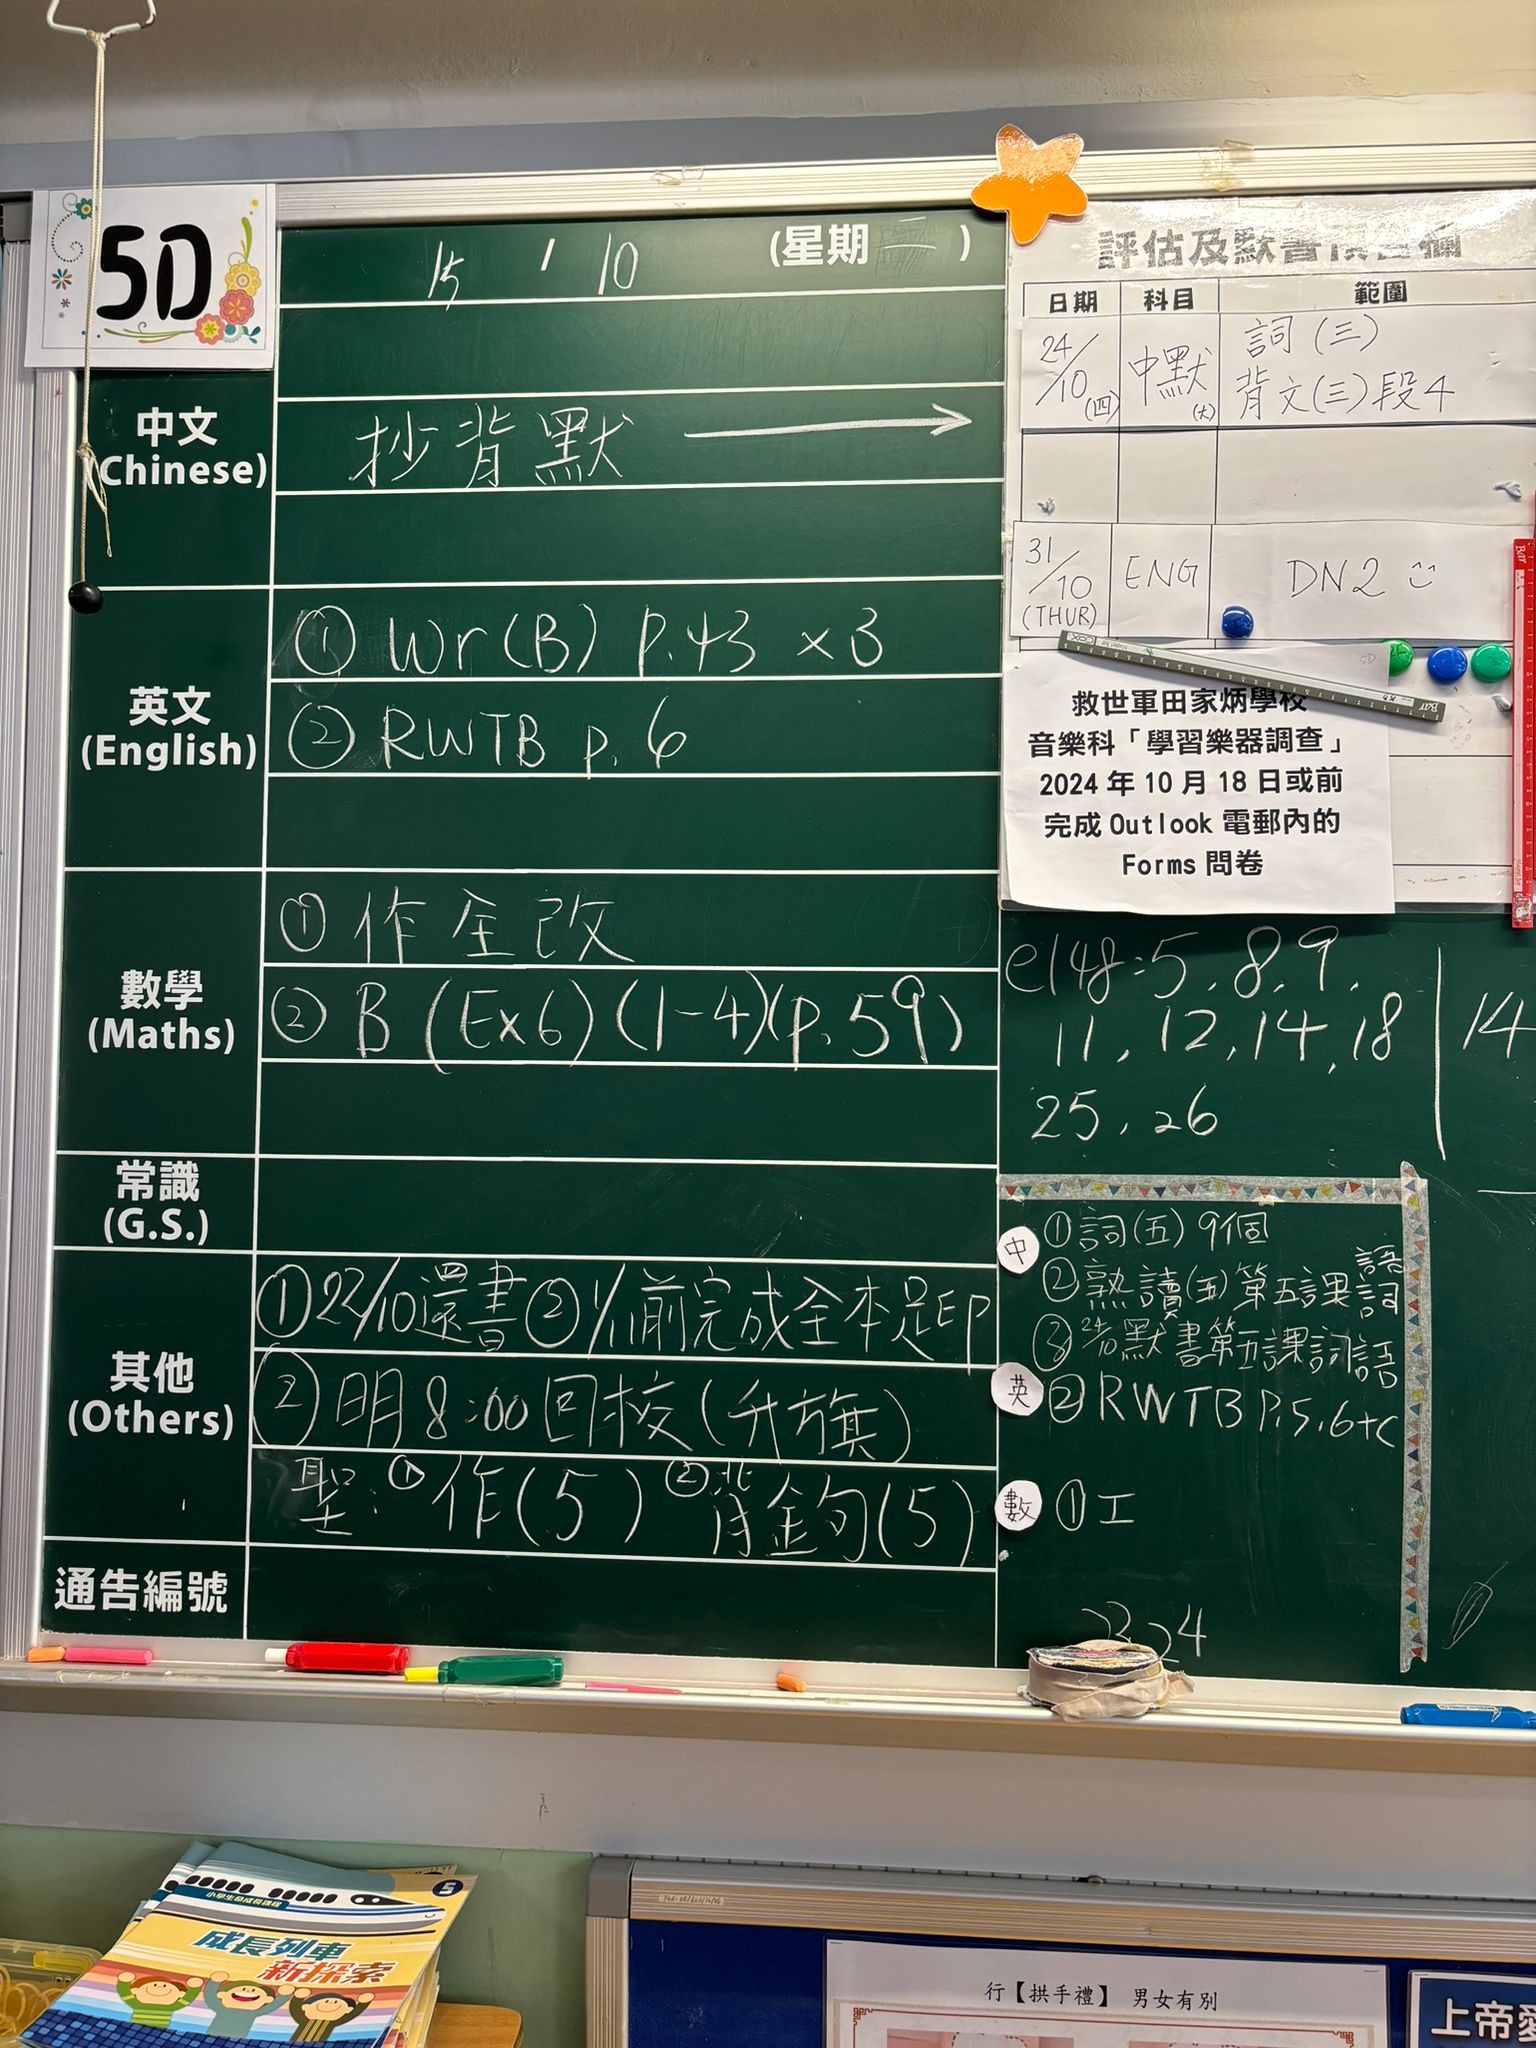 5D
15 / 10 (星期二)
中文
(Chinese)
抄背默 →
英文
(English)
① Wr(B) P.43 x3
② RWTB p.6
數學
(Maths)
① 作全改
② B (Ex6) (1-4)(p.59)
常識
(G.S.)
其他
(Others)
①22/10還書②1/11前完成全本足印
②明8:00回校(升旗)
聖:①作(5) ②背金句(5)
通告編號
評估及默書預告欄
日期 科目 範圍
24/10(四) 中默(大) 詞(三)
背文(三)段4
31/10 (THUR) ENG DN2
5D
救世軍田家炳學校
音樂科「學習樂器調查」
2024 年 10 月 18 日或前
完成 Outlook 電郵內的
Forms 問卷
e148:5, 8, 9,
11, 12, 14, 18
25, 26
14
中 ①詞(五) 9個
②熟讀(五)第五課詞語
③24/10默書第五課詞語
英 ②RWTB P.5, 6+c
數 ①工
23 24
5
小學生命成長課程
成長列車
新探索
行【拱手禮】 男女有別
上帝愛